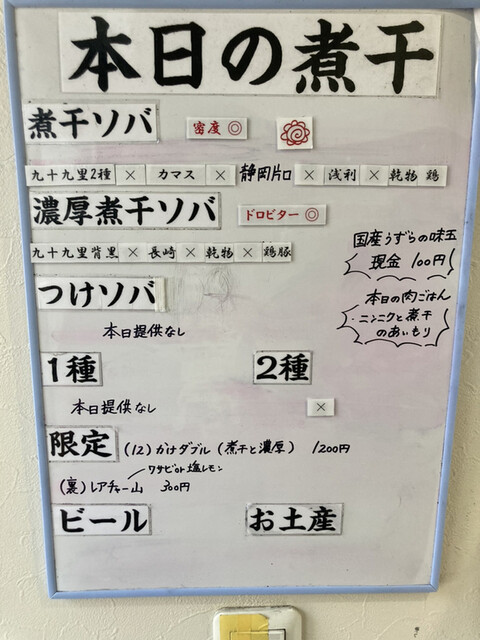 本日の煮干
煮干ソバ 密度◎
九十九里2種 × カマス × 静岡片口 × 浅利 × 乾物 鶏
濃厚煮干ソバ ドロビター◎
九十九里背黒 × 長崎 × 乾物 × 鶏豚
国産うずらの味玉
現金 100円
つけソバ
本日提供なし
本日の肉ごはん
・ニンニクと煮干
のあいもり
1種 2種
本日提供なし ×
限定 (12) かけダブル (煮干と濃厚) 1200円
ワサビor塩レモン
(裏) レアチャー山 300円
ビール お土産